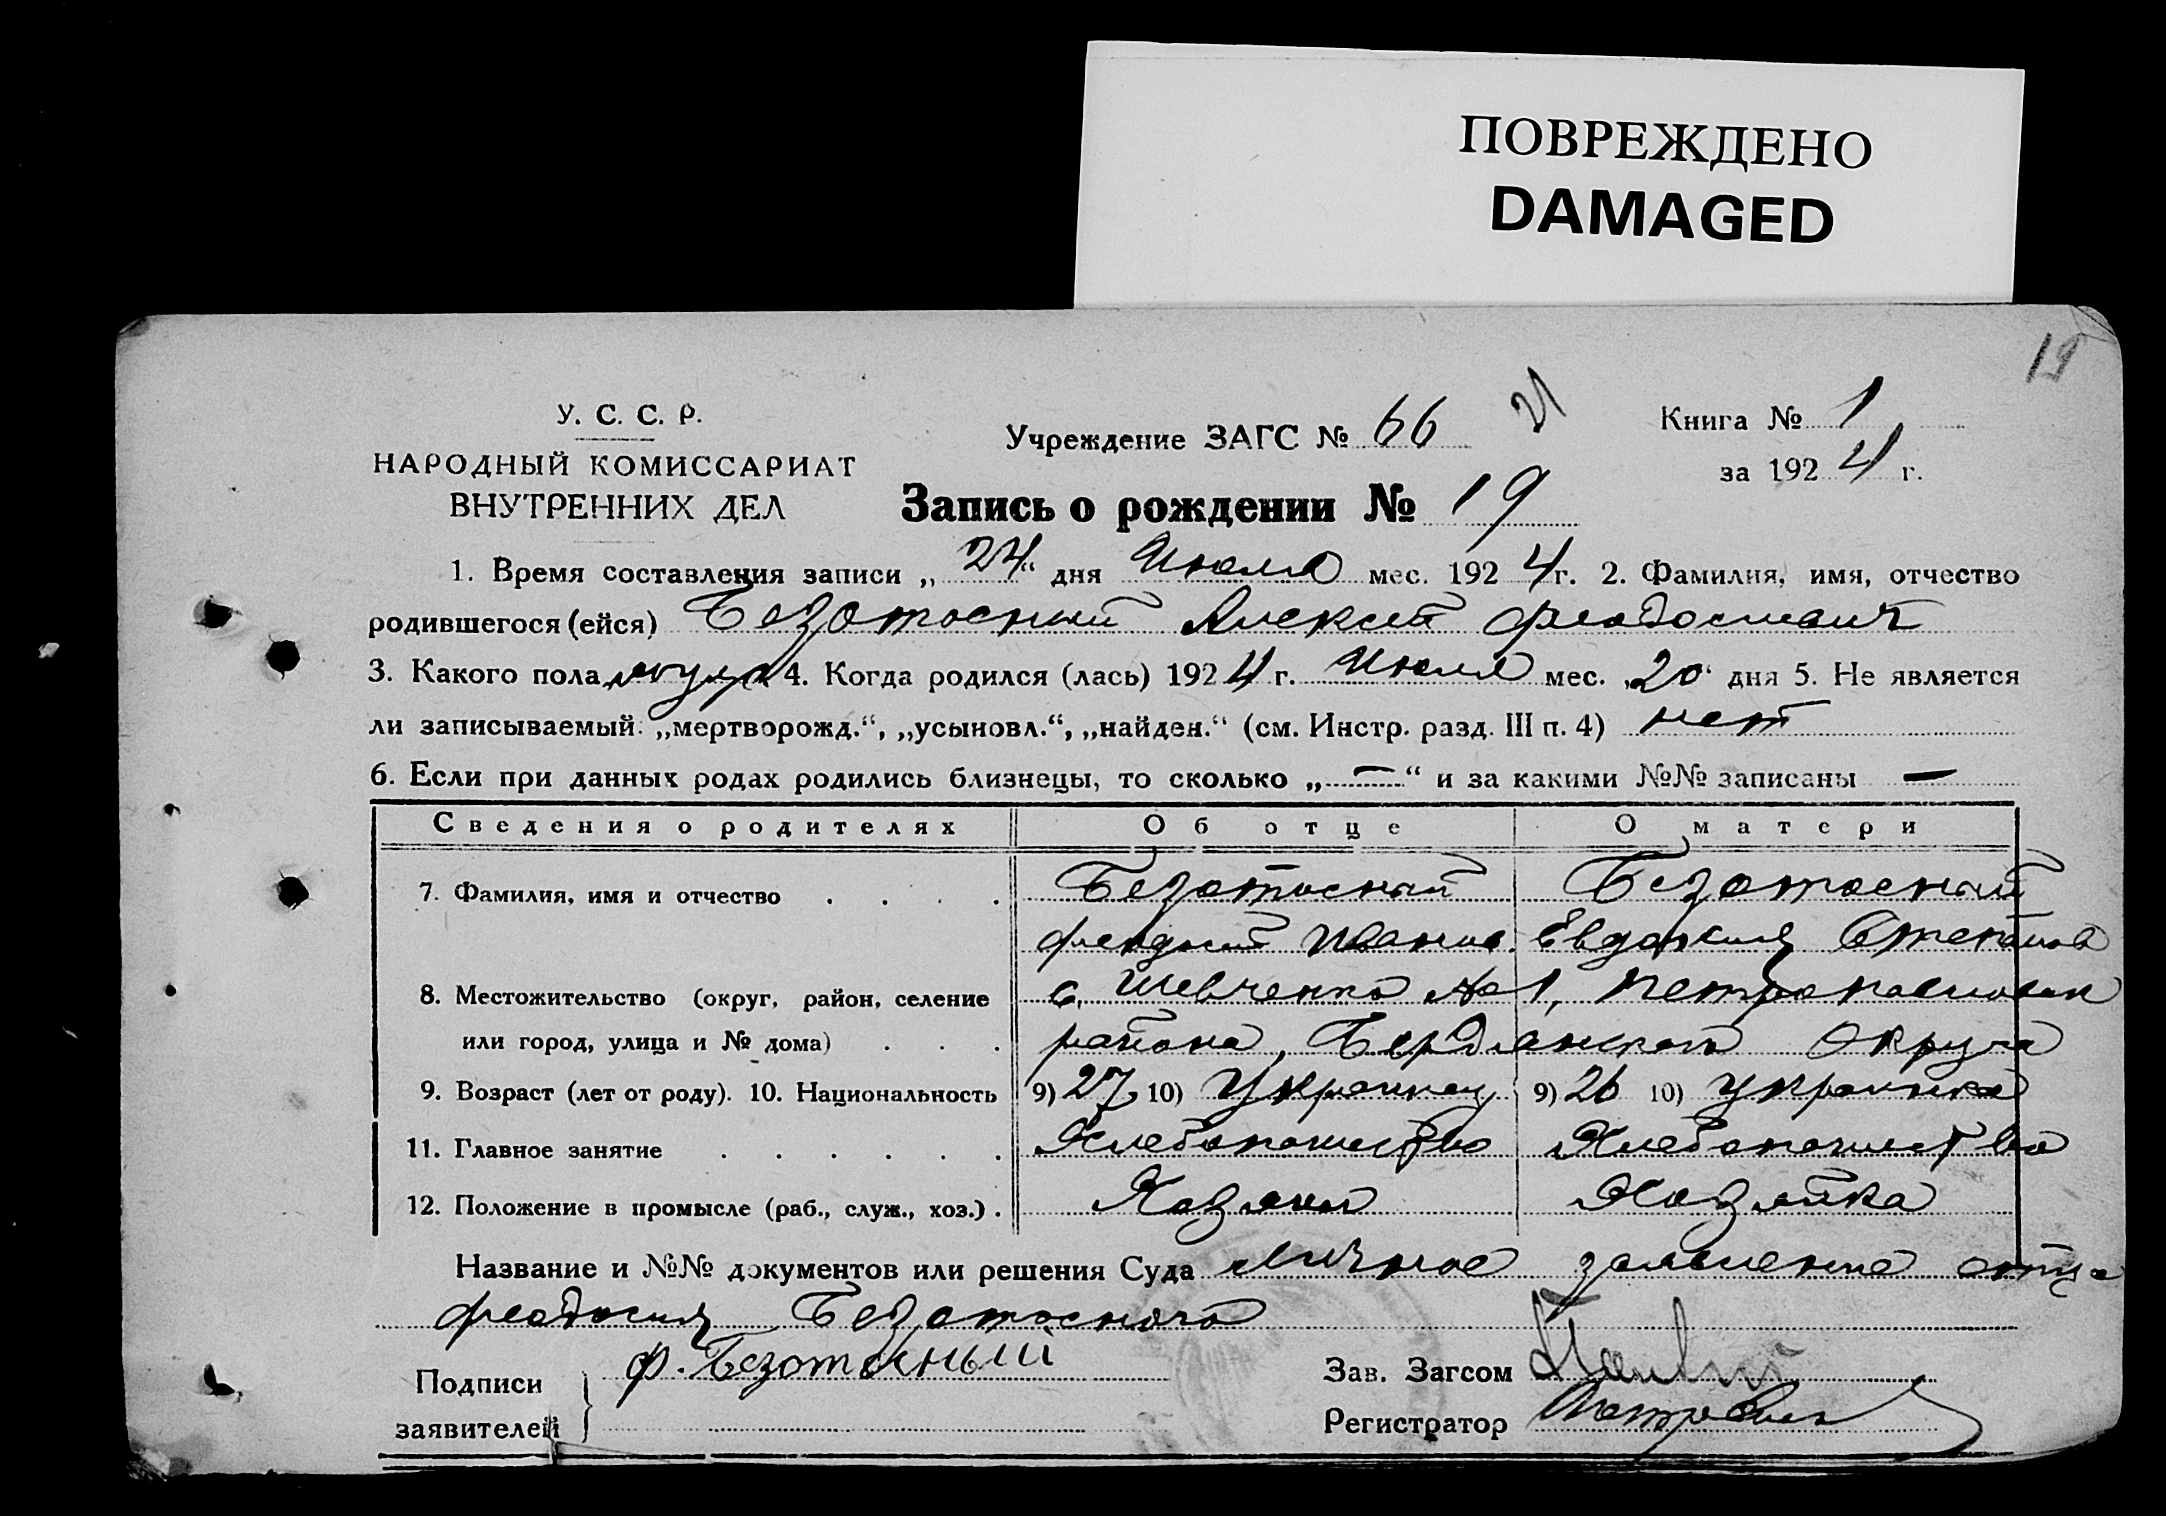 ПОВРЕЖДЕНО
DAMAGED
19
У. С. С. Р.
НАРОДНЫЙ КОМИССАРИАТ
ВНУТРЕННИХ ДЕЛ
Учреждение ЗАГС № 66
21
Книга № 1
за 1924 г.
Запись о рождении № 19
1. Время составления записи „24“ дня Июля мес. 1924 г. 2. Фамилия, имя, отчество
родившегося (ейся) Безотосный Алексей Феодосиевич
3. Какого пола муж. 4. Когда родился (лась) 1924 г. Июля мес. „20“ дня 5. Не является
ли записываемый: „мертворожд.“, „усыновл.“, „найден.“ (см. Инстр. разд. III п. 4) нет
6. Если при данных родах родились близнецы, то сколько „—“ и за какими №№ записаны —
Сведения о родителях Об отце О матери
7. Фамилия, имя и отчество . . . . Безотосный Безотосный
Феодосий Иванов. Евдокия Степанов
8. Местожительство (округ, район, селение с. Шевченко № 1, Петропавловск
или город, улица и № дома) . . . района, Бердянского Округа
9. Возраст (лет от роду). 10. Национальность 9) 27 10) Украинец 9) 26 10) Украинка
11. Главное занятие . . . . . . Хлебопашество Хлебопашество
12. Положение в промысле (раб., служ., хоз.) . Хозяин Хозяйка
Название и №№ документов или решения Суда личное заявление отца
Феодосия Безотосного
Подписи Ф. Безотосный
заявителей
Зав. Загсом
Регистратор